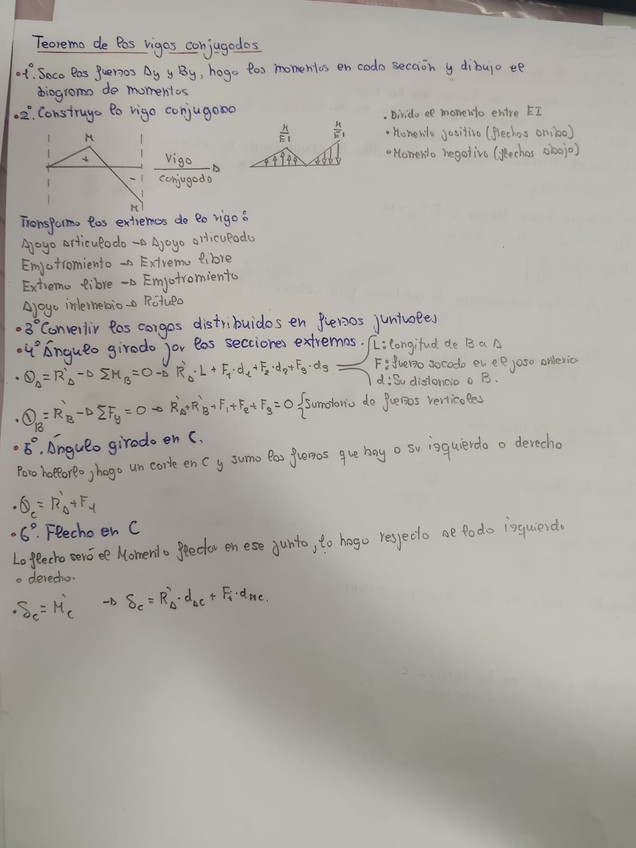 Teorema de las vigas conjugadas
• 1º. Saco las fuerzas Ay y By, hago los momentos en cada sección y dibujo el
diagrama de momentos
• 2º. Construyo la viga conjugada
M
+
-
M
Viga
conjugada
M/EI
M/EI
• Divido el momento entre EI
• Momento positivo (flechas arriba)
• Momento negativo (flechas abajo)
Transformo los extremos de la viga:
Apoyo articulado → Apoyo articulado
Empotramiento → Extremo libre
Extremo libre → Empotramiento
Apoyo intermedio → Rótula
• 3º Convertir las cargas distribuidas en fuerzas puntuales
• 4º Ángulo girado por las secciones extremas.
• θA = R'A → ΣMB = 0 → R'A · L + F1 · d1 + F2 · d2 + F3 · d3
L: longitud de B a A
F: fuerza sacada en el paso anterior
d: Su distancia a B.
• θB = R'B → ΣFy = 0 → R'A + R'B + F1 + F2 + F3 = 0 { Sumatorio de fuerzas verticales
• 5º. Ángulo girado en C.
Para hallarlo, hago un corte en C y sumo las fuerzas que hay a su izquierda o derecha
• θC = R'A + F1
• 6º. Flecha en C
La flecha será el Momento flector en ese punto, lo hago respecto se lado izquierdo
o derecho.
• δC = M'C → δC = R'A · dAC + F1 · dMC.